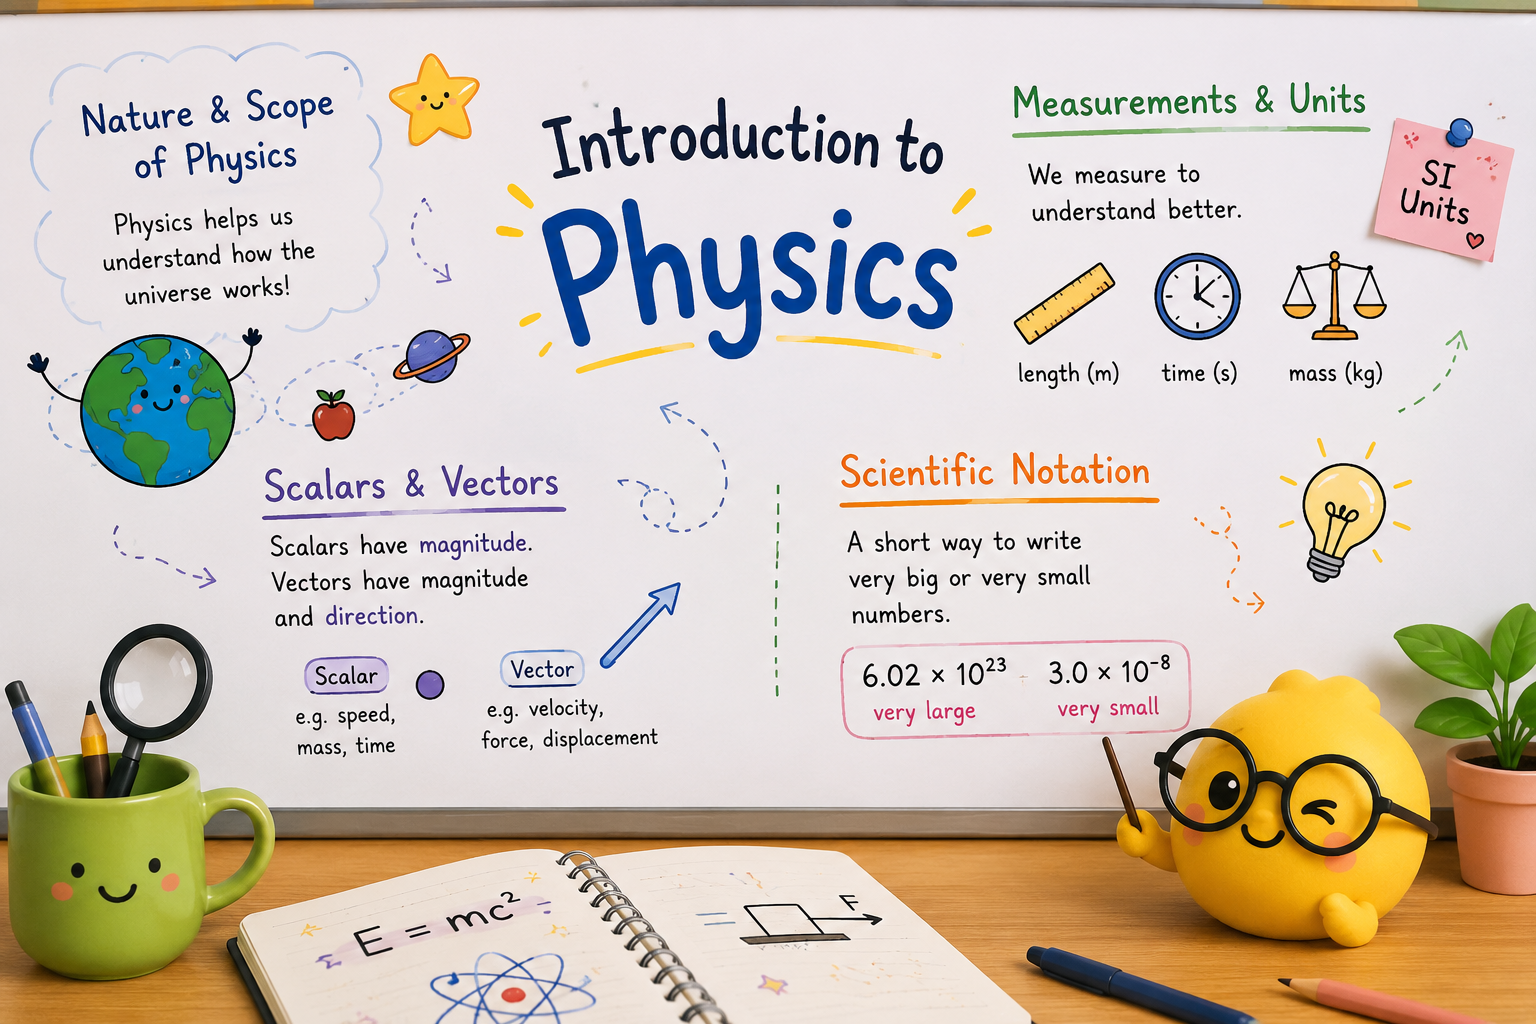 Nature & Scope
of Physics
Physics helps us
understand how the
universe works!
Introduction to
Physics
Measurements & Units
We measure to
understand better.
SI
Units
length (m)
time (s)
mass (kg)
Scalars & Vectors
Scalars have magnitude.
Vectors have magnitude
and direction.
Scalar
e.g. speed,
mass, time
Vector
e.g. velocity,
force, displacement
Scientific Notation
A short way to write
very big or very small
numbers.
6.02 × 10²³
very large
3.0 × 10⁻⁸
very small
E = mc²
F